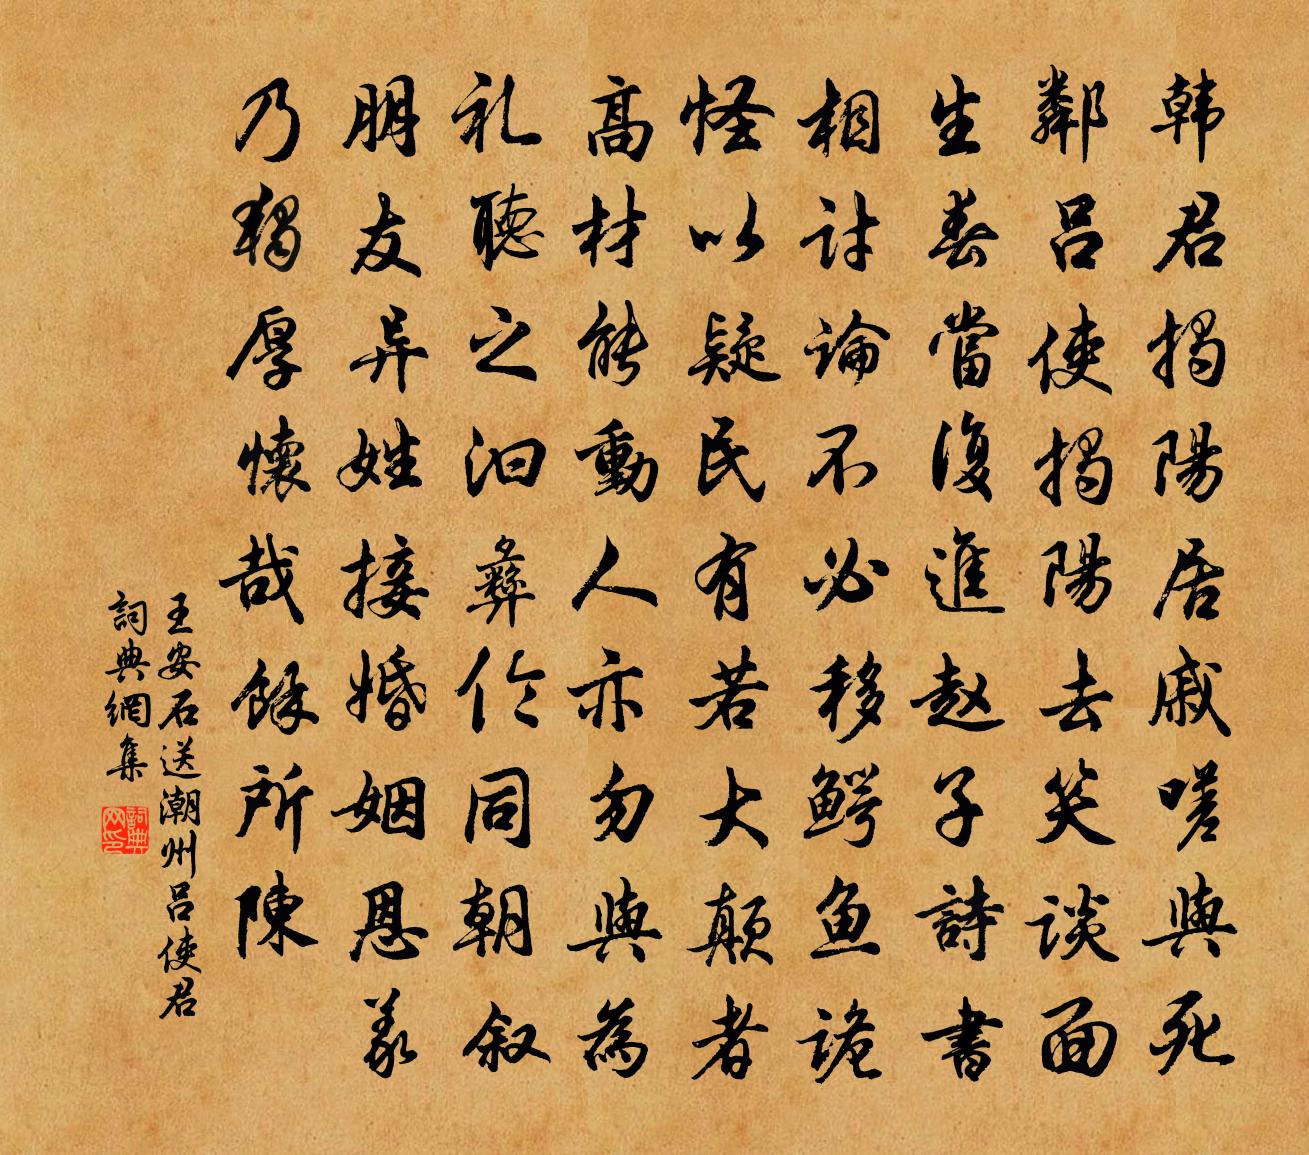 韩君揭陽居戚嗟與死
鄰吕使揭陽去笑談面
生春當復進赵子詩書
相討論不必移鳄鱼詭
怪以疑民有若大颠者
高材能動人亦勿與為
礼聽之汩彝伦同朝叙
朋友异姓接婚姻恩義
乃獨厚懷哉餘所陳
王安石送潮州吕使君
詞典網集
詞典
网印